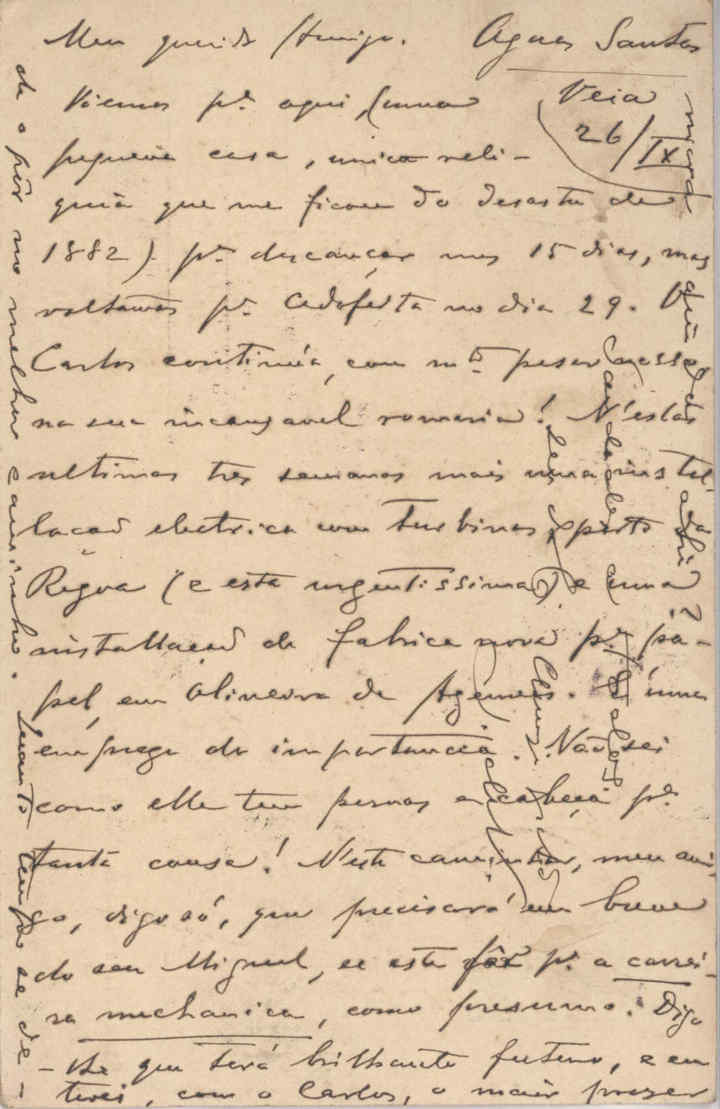 Meu querido Amigo. Agoas Santas
Veia
26/IX
Viemos pª aqui, (uma
pequena casa, unica reli-
quia que me ficou do desastre de
1882) pª descançar uns 15 dias, mas
voltamos pª Cedofeita no dia 29. O
Carlos continúa, com mtº pesar nosso
na sua incançavel romaria! N'estas
ultimas tres semanas mais uma instal-
lação electrica com turbinas, perto da
Regoa (e esta urgentissima) e uma
installação de fabrica nova pª pa-
pel, em Oliveira de Azemeis. É uma
emprega de importancia. Não sei
como elle tem pernas e cabeça pª
tanta cousa! N'este caminhar, meu ami-
go, digo só, que precisará em breve
do seu Miguel, se este fôr pª a carrei-
ra mechanica, como presumo. Digo
-lhe que terá brilhante futuro, e eu
terei, com o Carlos, o maior prazer
de o pôr no melhor caminho. Quanto tempo se de-
morará